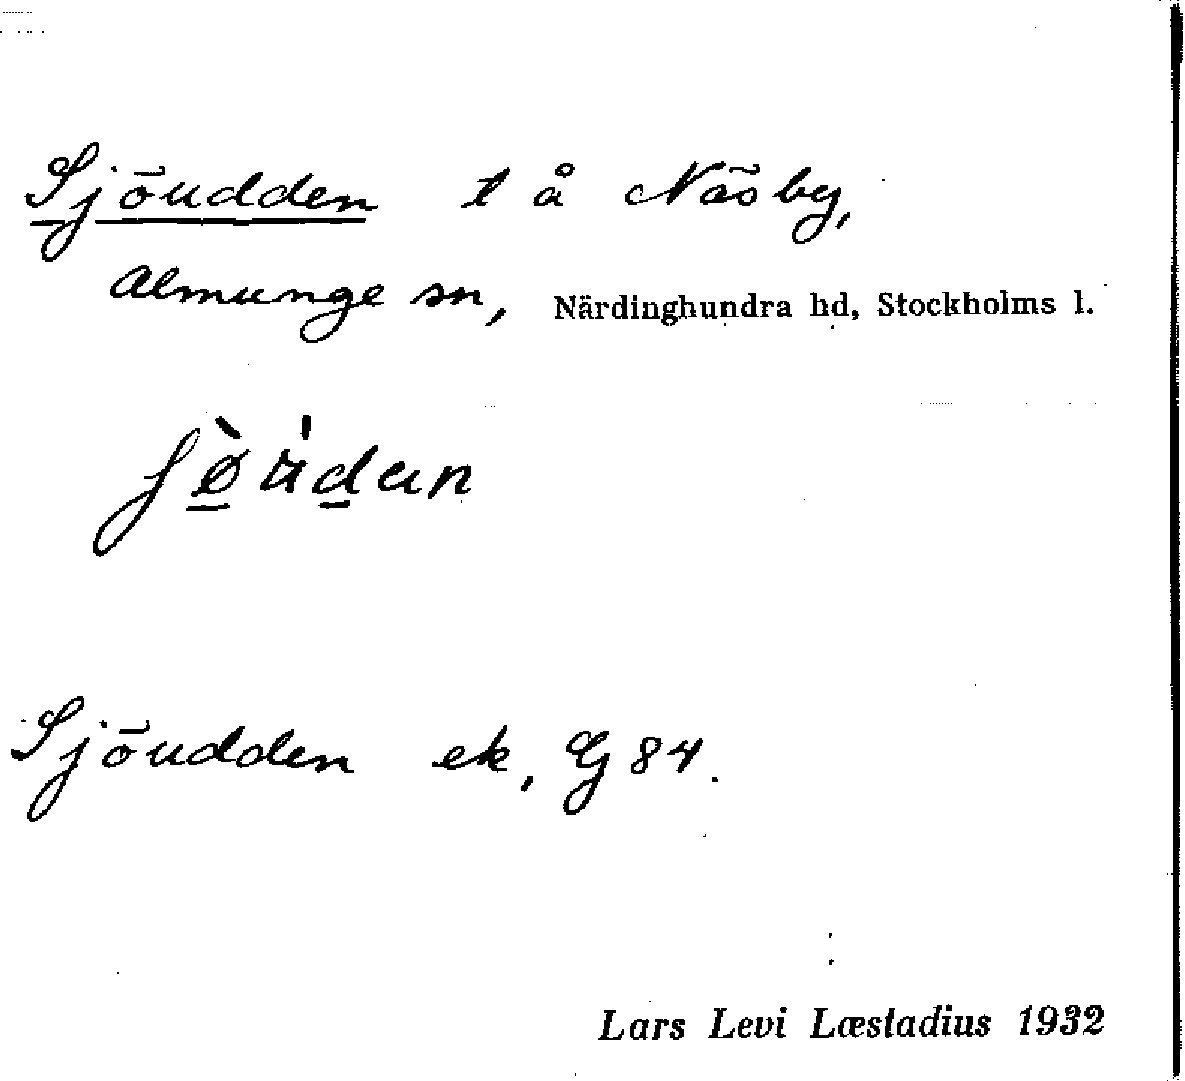 Sjöudden t å Näsby,
Almunge sn, Närdinghundra hd, Stockholms l.
Sjöudden ek, G 84.
Lars Levi Læstadius 1932